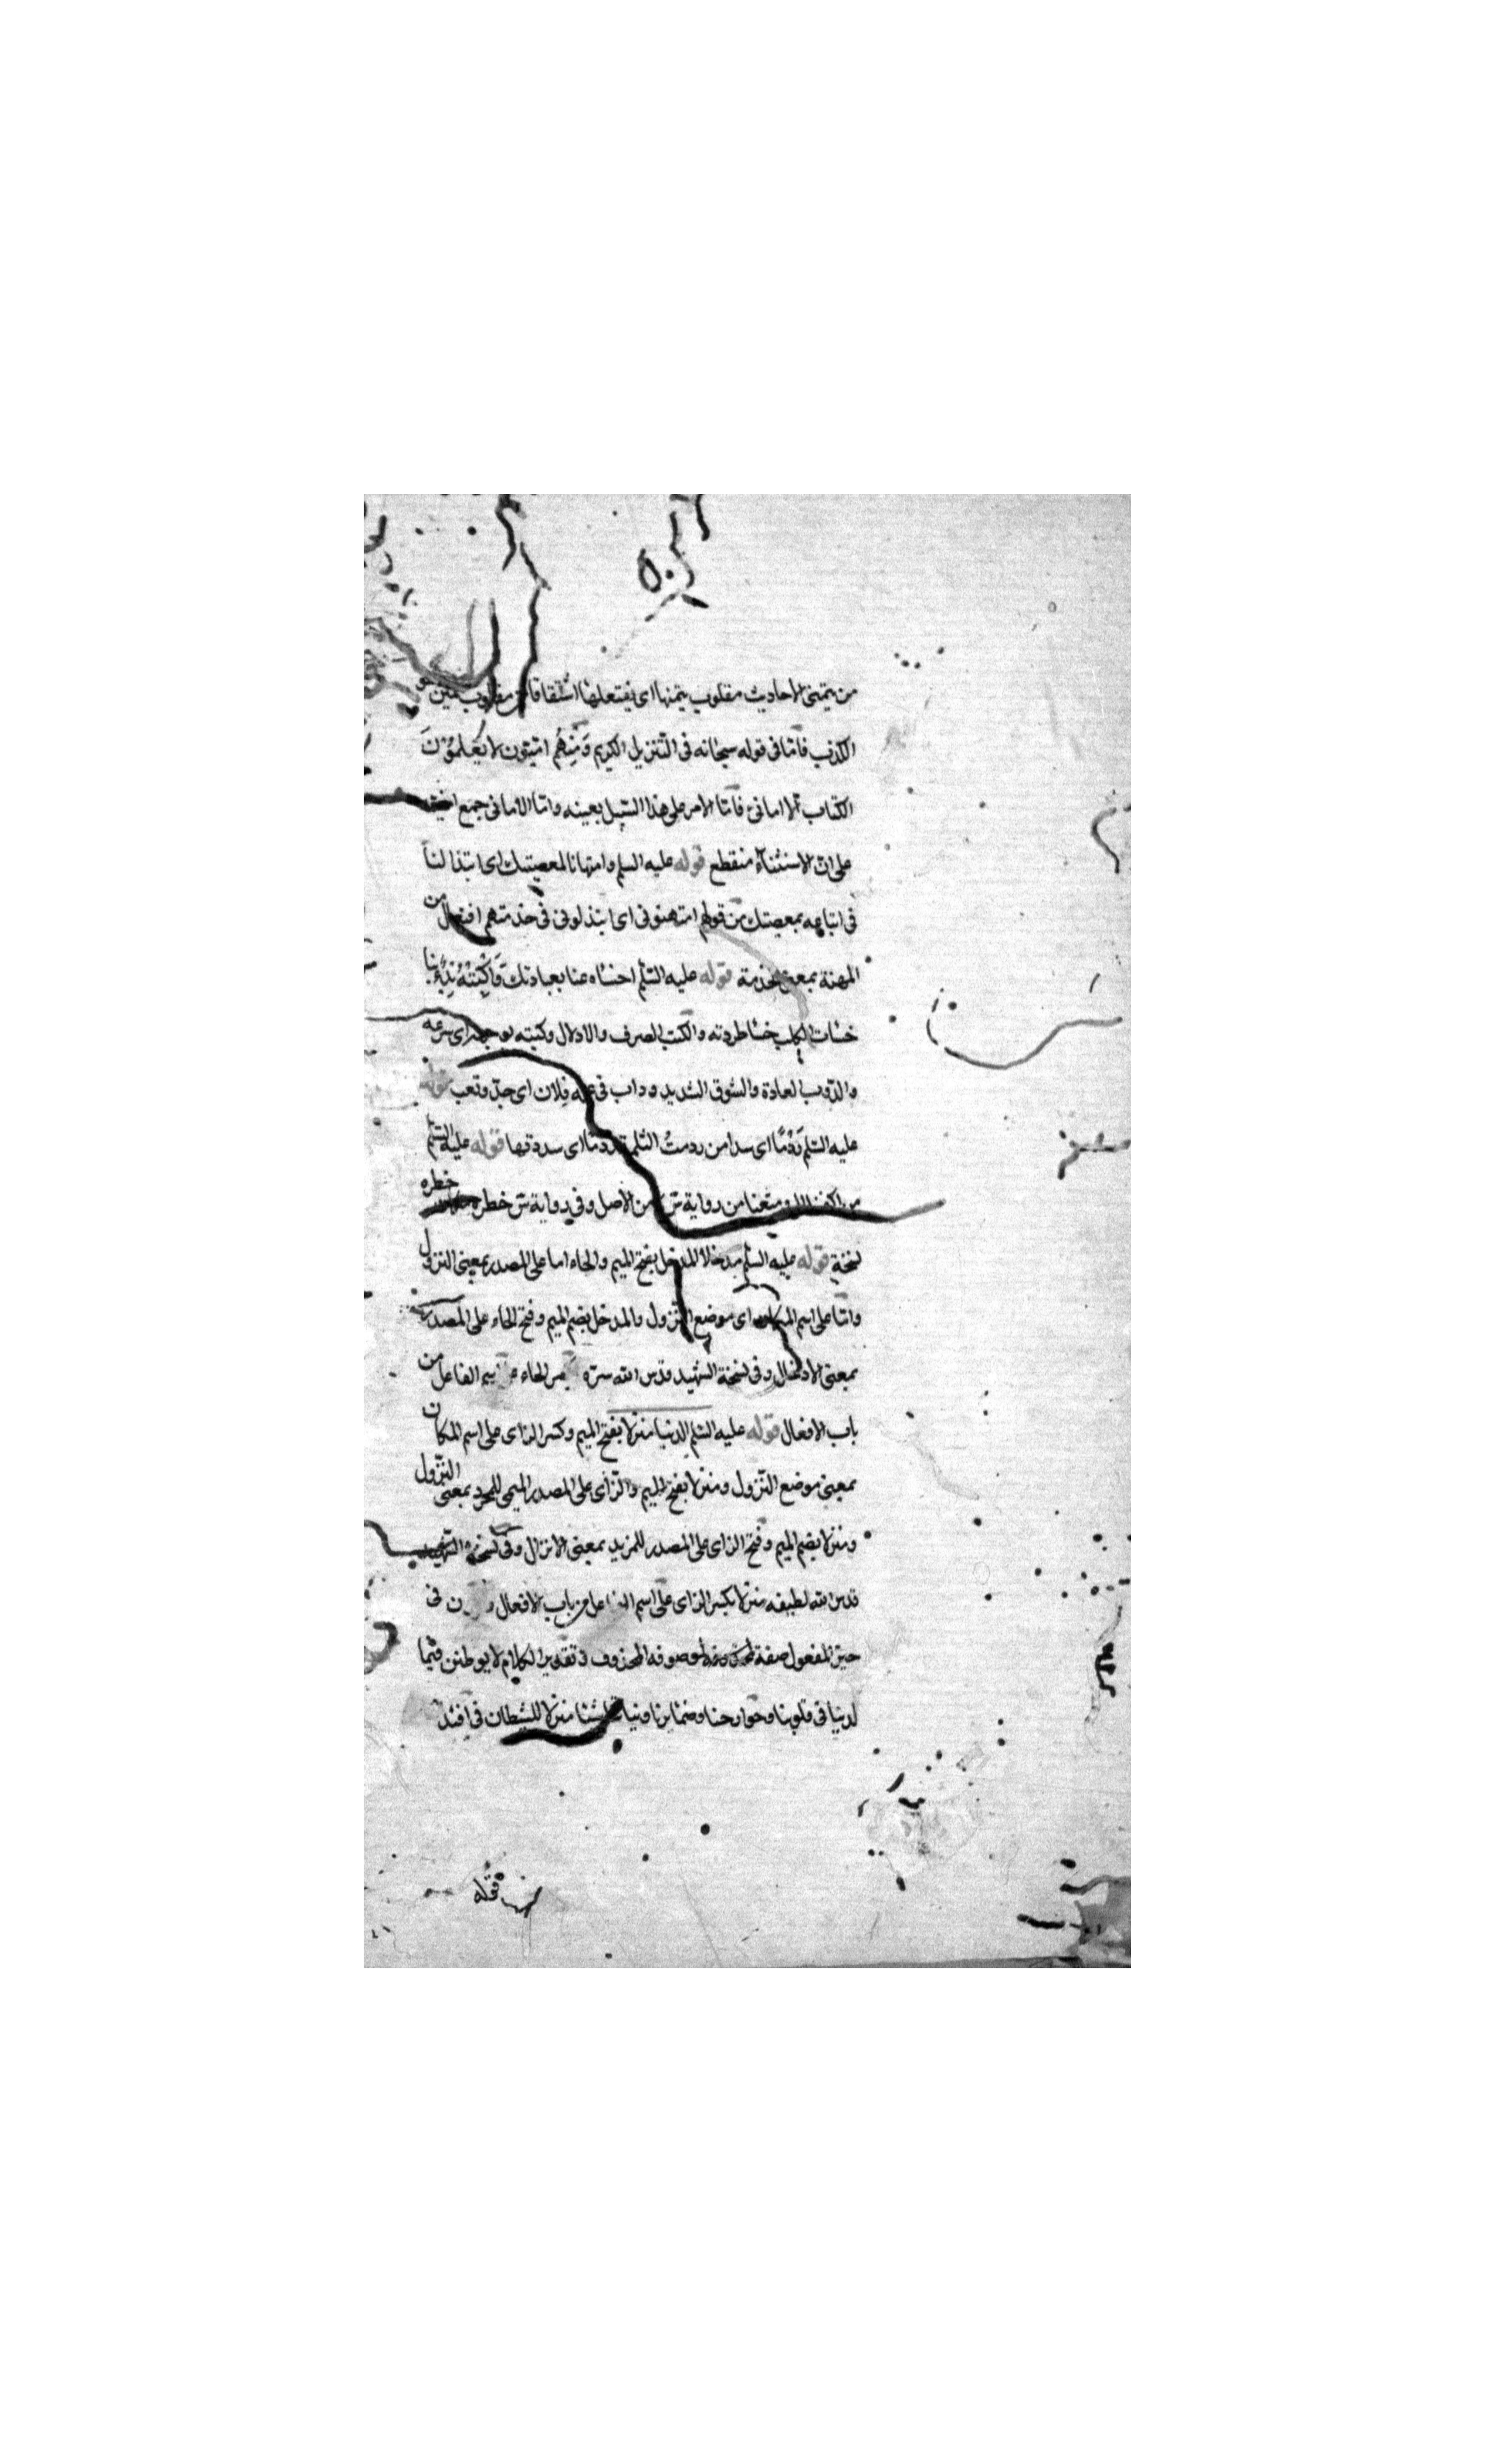 من يتمنى الاحاديث مقلوب يتمنها اى يفتعلها اشتقاقا من مقلوب المين هو
الكذب فامّا فى قوله سبحانه فى التّنزيل الكريم وَمِنهُم امّيّون لا يَعْلمُوْنَ
الكتاب الّا امانىّ فامّا الامر على هذا السّبيل بعينه وامّا الامانى جمع
على انّ الاستثناء منقطع قوله عليه السلم وامتهانا لمعصيتك اى ابتذالنا
فى اتباعه بمعصيتك من قولهم امتهنونى اى ابتذلونى فى خدمتهم افتعال من
المهنة بمعنى الخدمة قوله عليه السّلم اخسئاه عنا بعبادتك وَاكْبِتْهُ بِدُءُوبِنا
خسئات الكلب خسئا طردته والكبت الصرف والاذلال وكبته لوجهه اى صرعه
والدّوب العادة والسّوق الشديد وداب فى عمله فلان اى جدّ وتعب قوله
عليه السّلم رَدْمًا اى سدا من ردمتُ الثلمة رَدمًا اى سددتها قوله عليه السّلم
من رواية س من الاصل وفى رواية س خطره خطره
نسخة قوله عليه السّلم مدخلا المدخل بفتح الميم والخاء اما على المصدر بمعنى النزول
وامّا على اسم المكان اى موضع النّزول والمدخل بضم الميم وفتح الخاء على المصدر
بمعنى الادخال وفى نسخة الشهيد قدس الله سرّه بكسر الخاء على اسم الفاعل من
باب الافعال قوله عليه السّلم الدنيا منزلا بفتح الميم وكسر الزاى على اسم المكان
بمعنى موضع النّزول ومنزلا بفتح الميم والزّاى على المصدر الميمى للمجرد بمعنى النّزول
ومنزلا بضم الميم وفتح الزاى على المصدر للمزيد بمعنى الانزال وفى نسخة الشّهيد
قدس الله لطيفه منزلا بكسر الزاى على اسم الفاعل من باب الافعال و ن فى
حيّز المفعول صفة لموصوفه المحذوف و تقدير الكلام لا يوطنن فيما
لدنيا فى قلوبنا وجوارحنا وضمايرنا ونيا منزلا للشيطان فى افئد
قوله